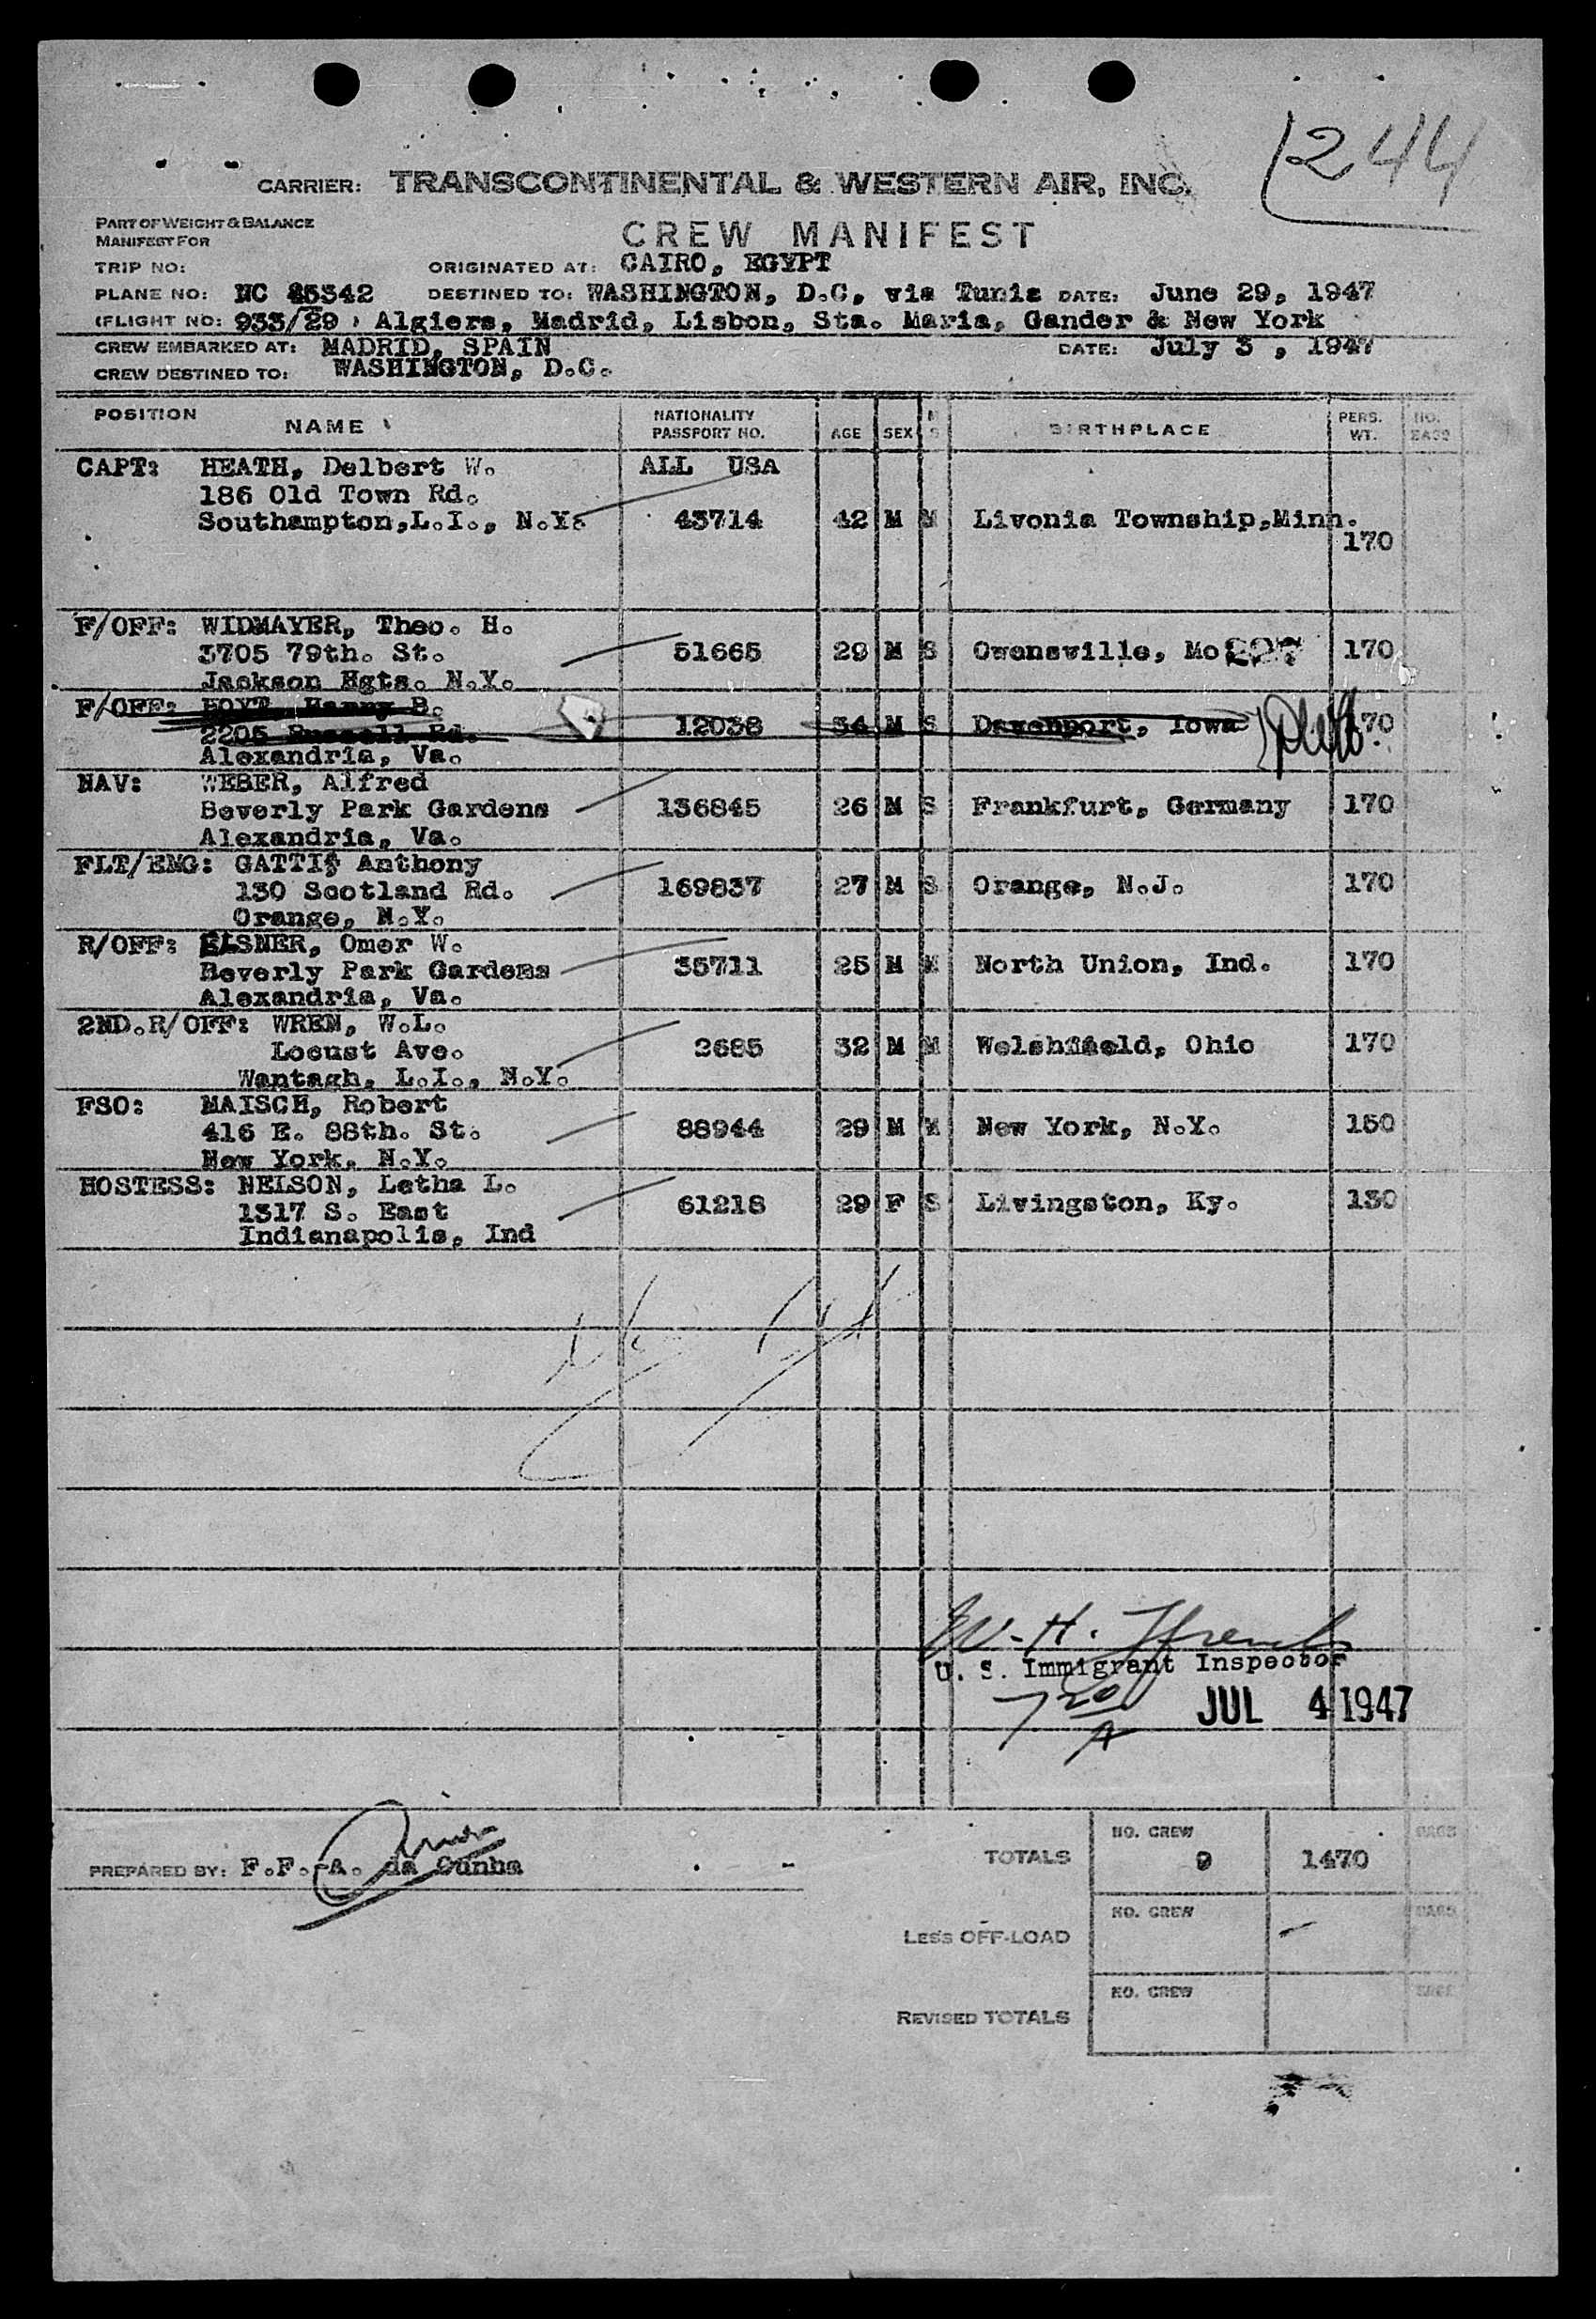 1244
CARRIER: TRANSCONTINENTAL & WESTERN AIR, INC.
PART OF WEIGHT & BALANCE
MANIFEST FOR
CREW MANIFEST
TRIP NO: ORIGINATED AT: CAIRO, EGYPT
PLANE NO: NC 45342 DESTINED TO: WASHINGTON, D.C. via Tunis DATE: June 29, 1947
(FLIGHT NO: 933/29 ) Algiers, Madrid, Lisbon, Sta. Maria, Gander & New York
CREW EMBARKED AT: MADRID, SPAIN DATE: July 3 , 1947
CREW DESTINED TO: WASHINGTON, D.C.
POSITION NAME NATIONALITY PASSPORT NO. AGE SEX M S BIRTHPLACE PERS. WT. NO. BAGS
CAPT: HEATH, Delbert W. ALL USA
186 Old Town Rd.
Southampton,L.I., N.Y. 43714 42 M M Livonia Township,Minn.
170
F/OFF: WIDMAYER, Theo. H.
3705 79th. St. 51665 29 M S Owensville, Mo 227 170
Jackson Hgts. N.Y.
F/OFF: HOYT, Harry B.
2205 Russell Rd. 12038 34 M S Davenport, Iowa 170
Alexandria, Va.
NAV: WEBER, Alfred
Beverly Park Gardens 136845 26 M S Frankfurt, Germany 170
Alexandria, Va.
FLT/ENG: GATTI, Anthony
130 Scotland Rd. 169837 27 M S Orange, N.J. 170
Orange, N.Y.
R/OFF: ELSNER, Omer W.
Beverly Park Gardens 35711 25 M M North Union, Ind. 170
Alexandria, Va.
2ND.R/OFF: WREN, W.L.
Locust Ave. 2685 32 M M Welshfield, Ohio 170
Wantagh, L.I., N.Y.
FSO: MAISCH, Robert
416 E. 88th. St. 88944 29 M M New York, N.Y. 150
New York, N.Y.
HOSTESS: NELSON, Letha L.
1317 S. East 61218 29 F S Livingston, Ky. 130
Indianapolis, Ind
W. H. French
U. S. Immigrant Inspector
7 20 A JUL 4 1947
PREPARED BY: F.F. A. da Cunha
TOTALS NO. CREW 9 1470 BAGS
LESS OFF-LOAD NO. CREW BAGS
REVISED TOTALS NO. CREW BAGS